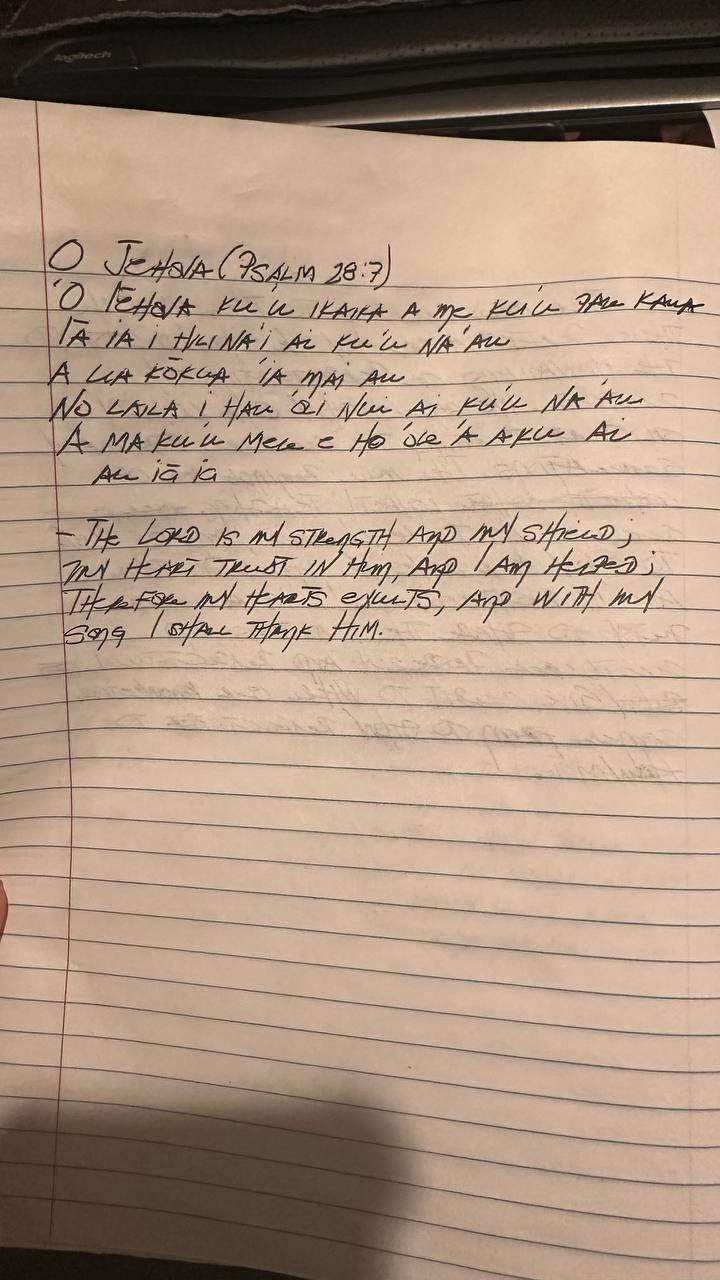 logitech
O JEHOVA (PSALM 28:7)
'O IĒHOVA KU'U IKAIKA A ME KU'U PALE KAUA
IĀ IA I HILINA'I AI KU'U NA'AU
A UA KŌKUA 'IA MAI AU
NO LAILA I HAU'OLI NUI AI KU'U NA'AU
A MA KU'U MELE E HO'OLE'A AKU AI
AU IĀ IA
- THE LORD IS MY STRENGTH AND MY SHIELD;
MY HEART TRUST IN HIM, AND I AM HELPED;
THEREFORE MY HEARTS EXULTS, AND WITH MY
SONG I SHALL THANK HIM.